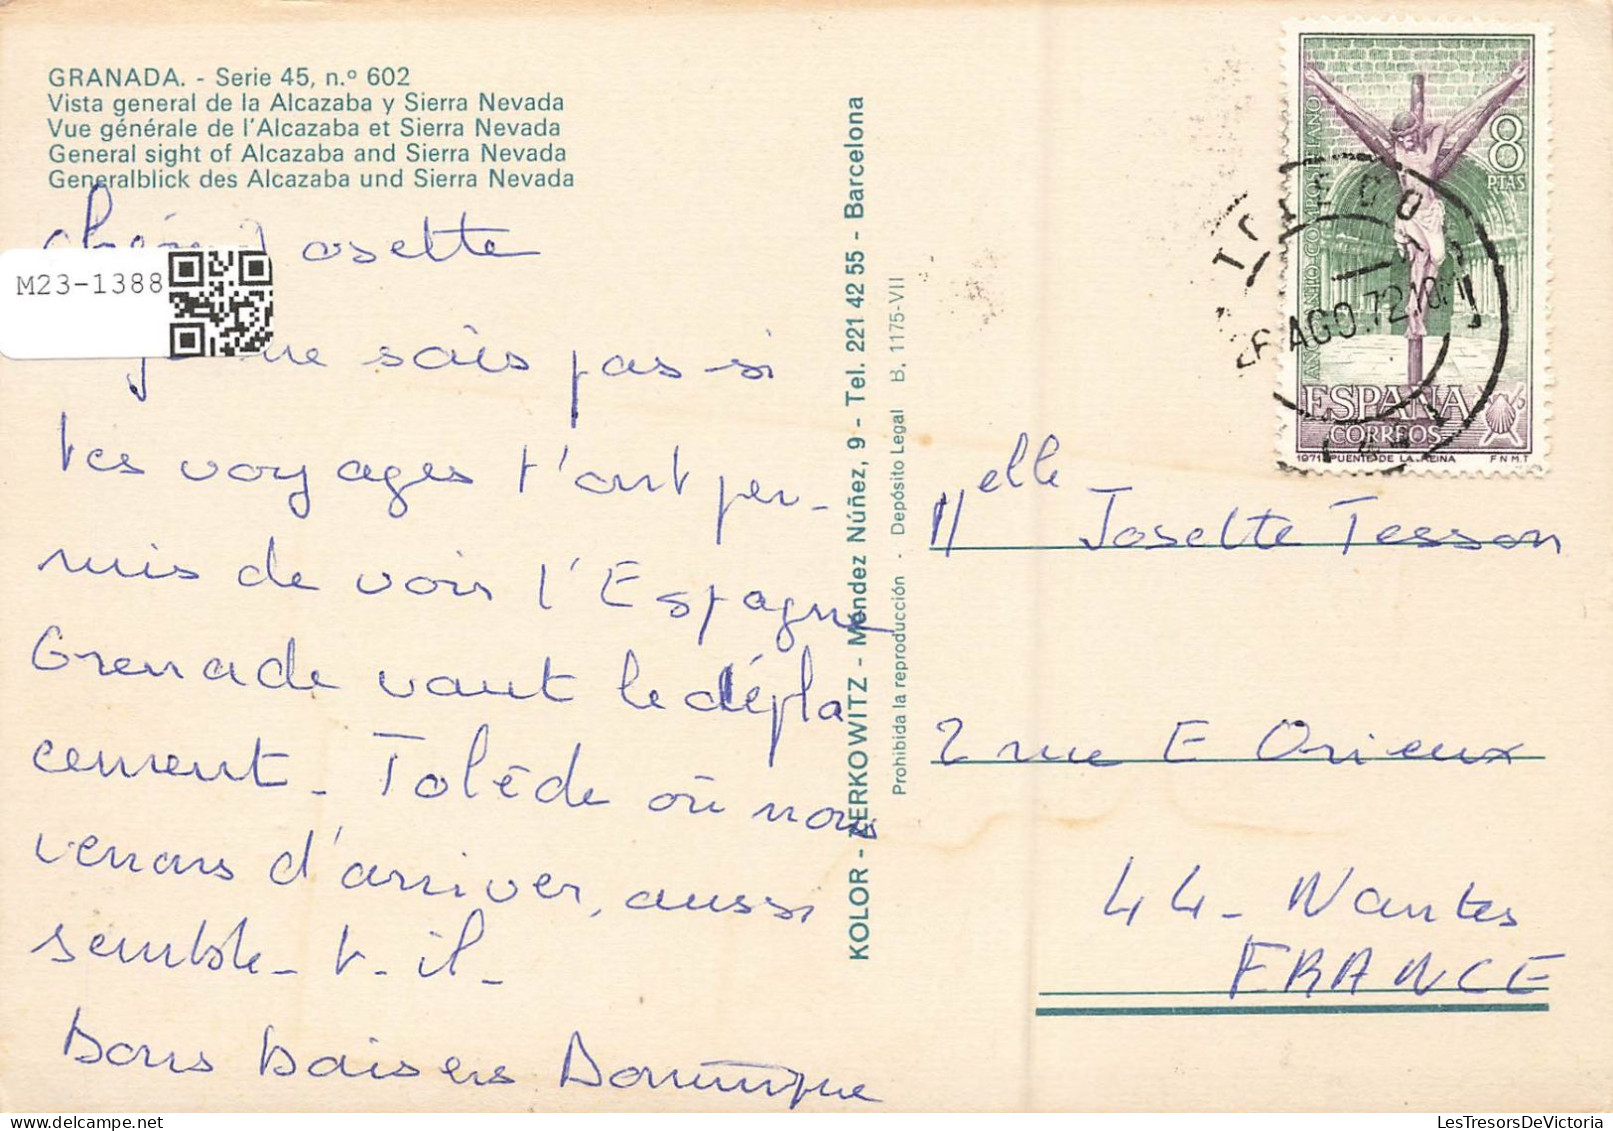 GRANADA. - Serie 45, n.º 602
Vista general de la Alcazaba y Sierra Nevada
Vue générale de l'Alcazaba et Sierra Nevada
General sight of Alcazaba and Sierra Nevada
Generalblick des Alcazaba und Sierra Nevada
M23-1388
Josette
je ne sais pas si
tes voyages t'ont per-
mis de voir l'Espagne
Grenade vaut le dépla
cement - Tolède où nous
venons d'arriver, aussi
semble-t-il -
Bons baisers Dominique
KOLOR - ZERKOWITZ - Méndez Núñez, 9 - Tel. 221 42 55 - Barcelona
Prohibida la reproducción - Depósito Legal B. 1175-VII
AÑO SANTO COMPOSTELANO
8
PTAS
TOLEDO
26 AGO.72
ESPAÑA
CORREOS
1971 PUENTE DE LA REINA F N M T
Melle Josette Tesson
2 rue E Orieux
44 - Nantes
FRANCE
LesTresorsDeVictoria.com